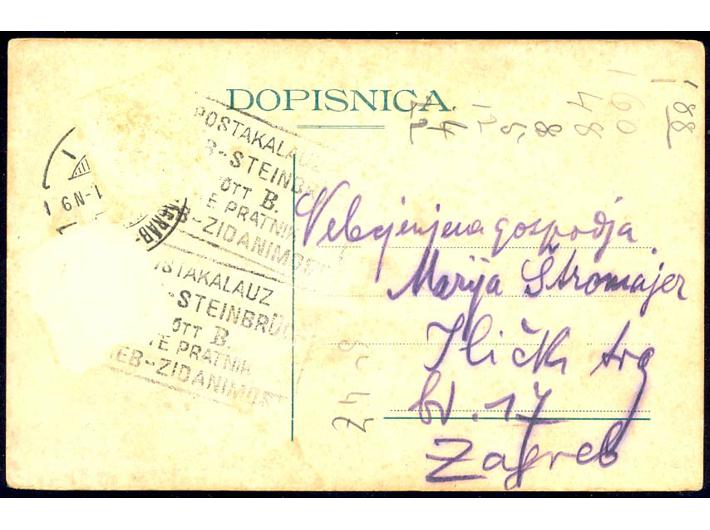 DOPISNICA.
POSTAKALAUZ
B-STEINBRÜ
ÖTT B.
E PRATNIK
B-ZIDANIMOST
STAKALAUZ
-STEINBRÜC
ÖTT B.
TE PRATNIK
EB-ZIDANIMOST
Velecjenjena gospodja
Marija Štromajer
Ilički trg
br. 17
Zagreb